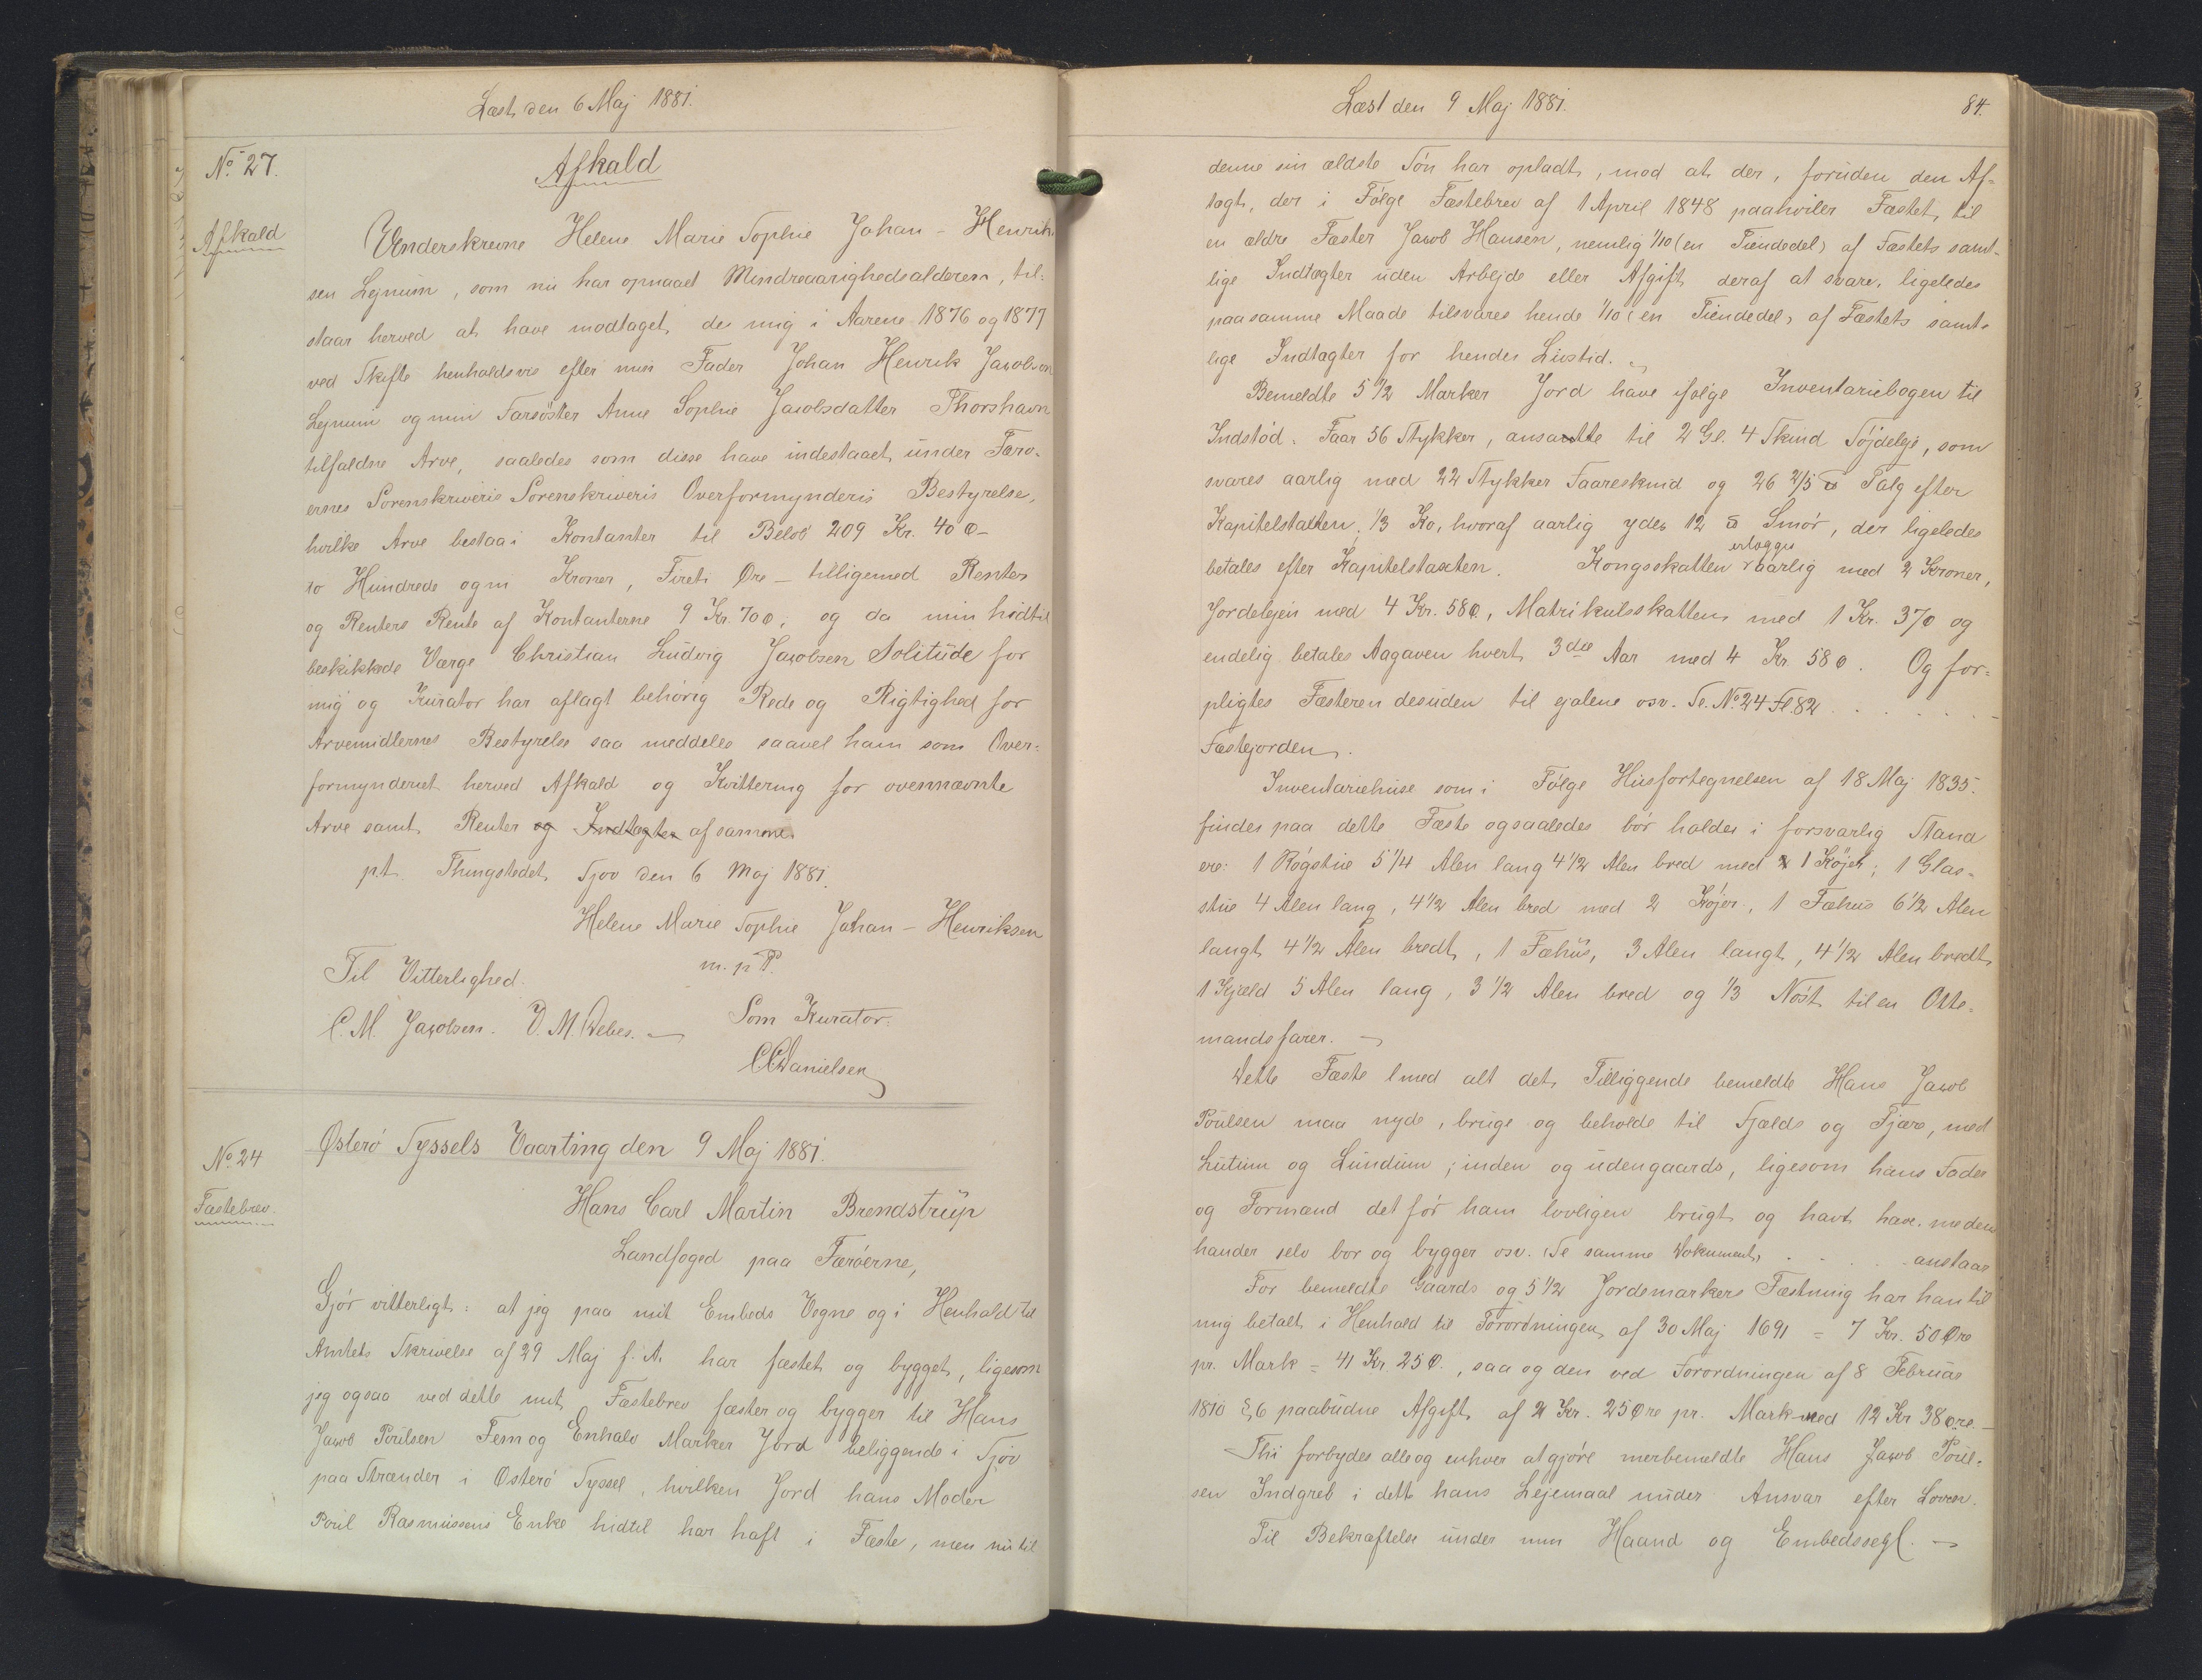 Læst den 6 Maj 1881.
No 27.
Afkald
Afkald
Underskrevne Helene Marie Sophie Johan - Henrik
sen Lejnum, som nu har opnaaet Mindreaarighedsalderen, til-
staar herved at have modtaget, de mig i Aarene 1876 og 1877
ved Skifte henholdsvis efter min Fader Johan Henrik Jacobsen
Lejnum og min Farsöster Anne Sophie Jacobsdatter Thorshavn
tilfaldne Arve, saaledes som disse have indestaaet under Færø-
ernes Sorenskriveris Sorenskriveris Overformynderis Bestyrelse,
hvilke Arve bestaa i Kontanter til Beløb 209 Kr. 40 Ø -
to Hundrede og ni Kroner, Fireti Øre - tilligemed Renter
og Renters Rente af Kontanterne 9 Kr. 70 Ø; og da min hidtil
beskikkede Værge Christian Ludvig Jacobsen Solitude for
mig og Kurator har aflagt behörig Rede og Rigtighed for
Arvemidlernes Bestyrelse saa meddeles saavel ham som Over-
formynderiet herved Afkald og Kvittering for ovennævnte
Arve samt Renter og Indtægter af samme.
p.t. Thingstedet Sjov den 6 Maj 1881.
Helene Marie Sophie Johan - Henriksen
m. p. P.
Til Vitterlighed.
C. M. Jacobsen. D. M. Debes. -
Som Kurator:
CCDanielsen
Østerö Syssels Vaarting den 9 Maj 1881.
No 24
Fæstebrev.
Hans Carl Martin Brendstrup
Landfoged paa Færöerne,
Gjör vitterligt: at jeg paa mit Embeds Vegne og i Henhold til
Amtets Skrivelse af 29 Maj f. A. har fæstet og bygget, ligesom
jeg ogsaa ved dette mit Fæstebrev fæster og bygger til Hans
Jacob Poulsen Fem og Enhalv Marker Jord beliggende i Sjov
paa Strænder i Österö Syssel, hvilken Jord hans Moder
Poul Rasmussens Enke hidtil har haft i Fæste, men nu til
Læst den 9 Maj 1881.
84.
denne sin ældste Sön har opladt, mod at der, foruden den Af-
tægt, der i Fölge Fæstebrev af 1 April 1848 paahviler Fæstet, til
en ældre Fæster Jacob Hansen, nemlig 1/10 (en Tiendedel) af Fæstets samt-
lige Indtægter uden Arbejde eller Afgift deraf at svare, ligeledes
paa samme Maade tilsvares hende 1/10 (en Tiendedel) af Fæstets samt-
lige Indtægter for hendes Livstid.
Bemeldte 5 1/2 Marker Jord have ifølge Inventariebogen til
Indstöd: Faar 56 Stykker, ansatte til 2 Gl. 4 Skind Söjdeleje, som
svares aarlig med 22 Stykker Faareskind og 26 2/5 ℔ Talg efter
Kapitelstaxten, 1/3 Ko, hvoraf aarlig ydes 12 ℔ Smör, der ligeledes
betales efter Kapitelstaxten. Kongsskatten erlægges aarlig med 2 Kroner,
Jordelejen med 4 Kr. 58 Ø, Matrikulsskatten med 1 Kr. 37 Ø og
endelig betales Aagaven hvert 3die Aar med 4 Kr. 58 Ø. Og for-
pligtes Fæsteren desuden til ejalene osv. Se. No. 24 Fl. 82 . . . . .
Fæstejorden.
Inventariehuse som i Fölge Husfortegnelsen af 18 Maj 1835.
findes paa dette Fæste og saaledes bör holdes i forsvarlig Stand
ere: 1 Rögstue 5 1/4 Alen lang 4 1/2 Alen bred med 1 Köje; 1 Glas-
stue 4 Alen lang, 4 1/2 Alen bred med 2 Köjer, 1 Fæhus 6 1/2 Alen
langt 4 1/2 Alen bredt, 1 Fæhus, 3 Alen langt, 4 1/2 Alen bredt,
1 Kjæld 5 Alen lang, 3 1/2 Alen bred og 1/3 Nöst til en Otte-
mandsfarer. -
Dette Fæste med alt det Tilliggende bemeldte Hans Jacob
Poulsen maa nyde, bruge og beholde til Fjælds og Fjære, med
Lutum og Lundum, inden og udengaards, ligesom hans Fader
og Formænd det för ham lovligen brugt og havt have. meden
hander selv bor og bygger osv. (Se samme Dokument) . . . anstaar
For bemeldte Gaards og 5 1/2 Jordsmarkers Fæstning har han til
mig betalt i Henhold til Forordningen af 30 Maj 1691 = 7 Kr. 50 Øre
pr. Mark = 41 Kr. 25 Ø., saa og den ved Forordningen af 8 Februar
1810 § 6 paabudne Afgift af 2 Kr. 25 Øre pr. Mark med 12 Kr 38 Øre. -
Thi forbydes alle og enhver at gjöre merbemeldte Hans Jacob Poul-
sen Indgreb i dette hans Lejemaal under Ansvar efter Loven.
Til Bekræftelse under min Haand og Embedssegl. -